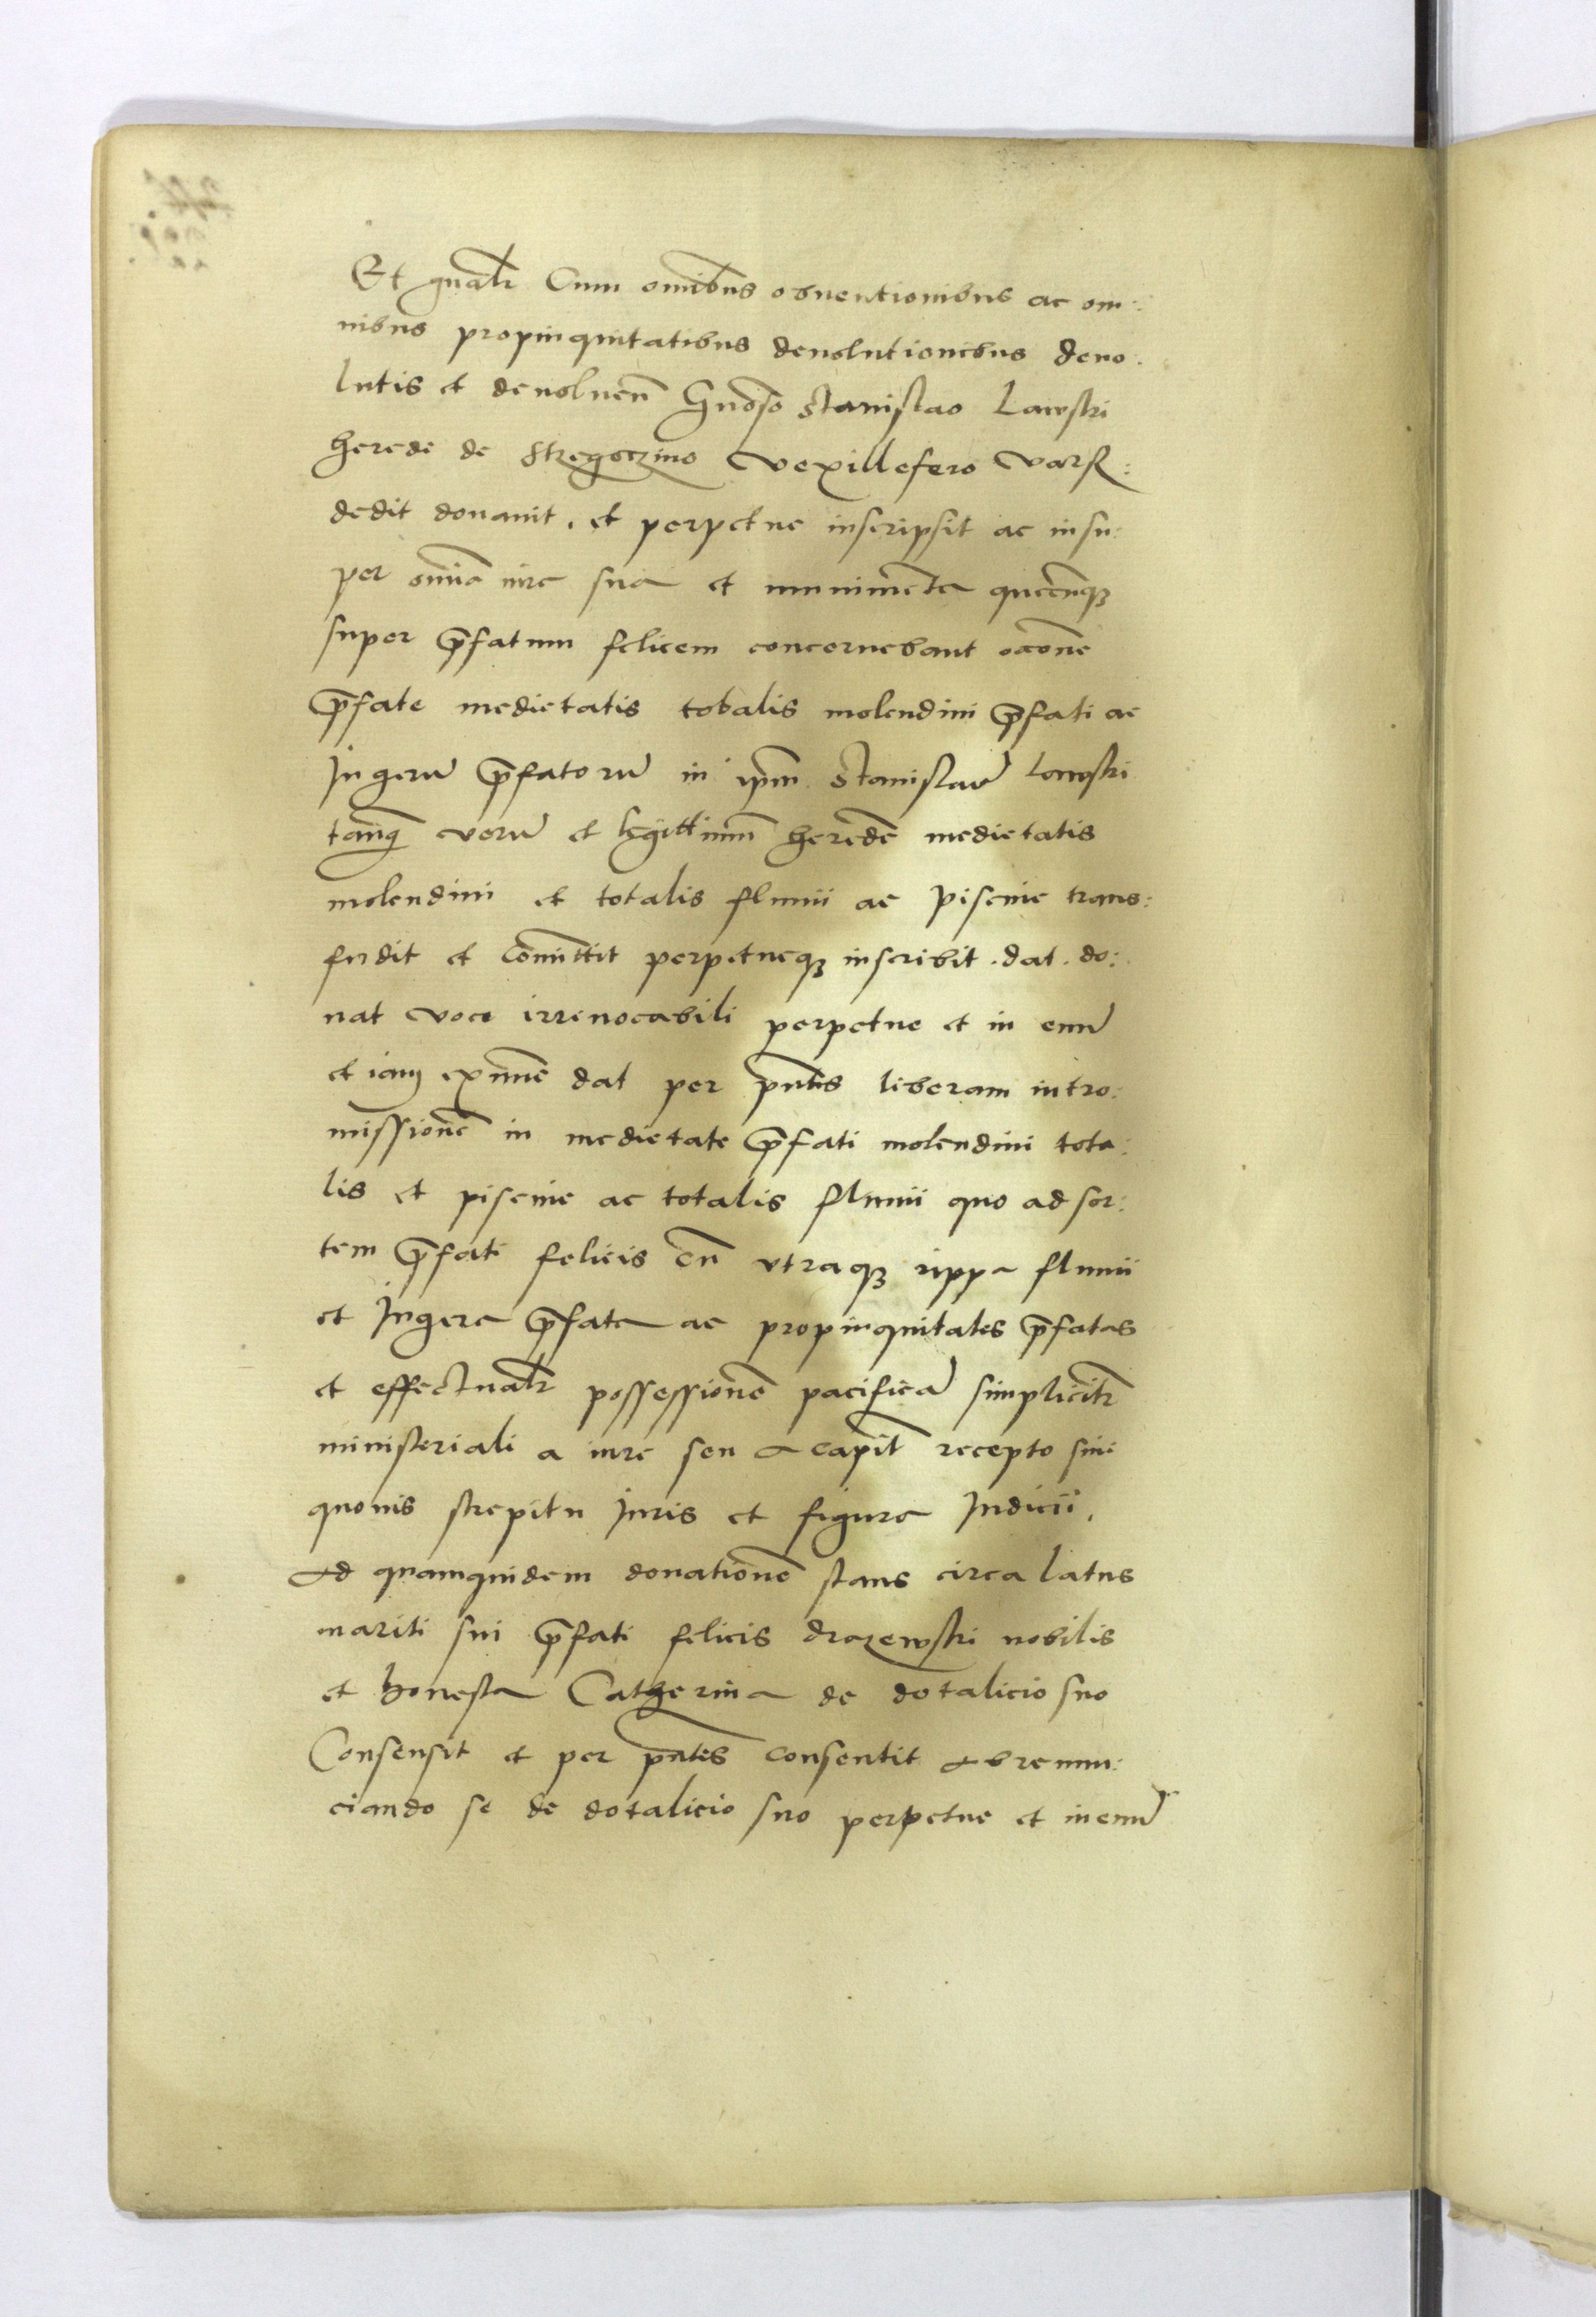 Et gnalr Cum omibus obuentionibus ac om:
nibus propinquitatibus deuolutionibus deuo:
lutis et deuoluen Gnoso Stanislao Lawski
herede de Strzegoczino vexillefero vars:
dedit donauit, et perpetue inscripsit ac insu:
per omia iura sua et munimeta quecunqz
super pfatum felicem concernebant occone
pfate medietatis tobalis molendini pfati ac
Jugeru pfatoru in ipm Stanislau Lawski
tanq veru et legittimum herede medietatis
molendini et totalis fluuii ac piscine trans:
fudit et comittit perpetueqz inscribit . dat . do:
nat voce irreuocabili perpetue et in euu
et iam exnunc dat per pntes liberam intro:
missione in medietate pfati molendini tota:
lis et piscine ac totalis fluuii quo ad sor:
tem pfati felicis cu vtraqz rippa fluuii
et Jugera pfata ac propinquitates pfatas
et effectualr possessione pacifica simplicitr
ministeriali a iure seu a capit recepto sine
quouis strepitu Juris et figura Judicii,
Ad quamquidem donatione stans circa latus
mariti sui pfati felicis drozewski nobilis
et honesta Catherina de dotalicio suo
Consensit et per pntes consentit abrenun:
ciando se de dotalicio suo perpetue et ineuu